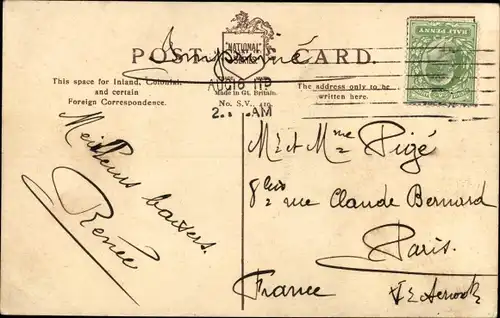 POST CARD.
Imprimé
"NATIONAL"
SERIES
Made in Gt. Britain.
No. S.V. 419
This space for Inland, Colonial,
and certain
Foreign Correspondence.
The address only to be
written here.
HALF PENNY
AUG 16
AM
Meilleurs baisers.
Renée
Mr et Mme Pigé
8 bis rue Claude Bernard
Paris.
France